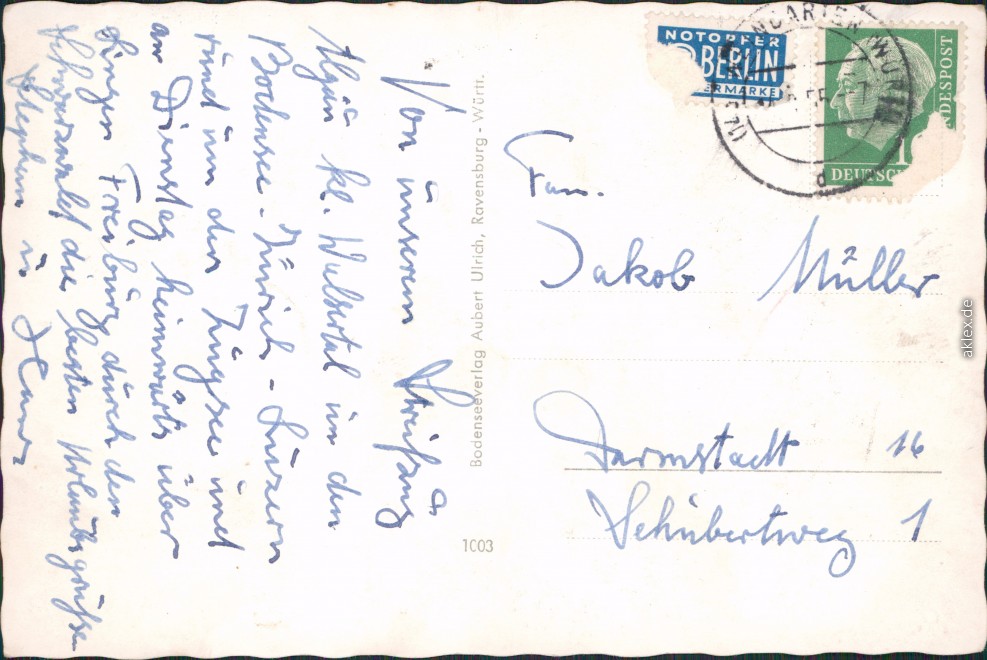 Von unserem Streifzug d.
Algäu kl. Walsertal um den
Bodensee - Zürich - Luzern
rund um den Zugsee und
am Dienstag heimwärts über
Singen Freiburg durch den
Schwarzwald die besten Urlaubsgrüße
Stephan u. Hans
Bodenseeverlag Aubert Ulrich, Ravensburg - Württ.
1003
NOTOPFER
2 BERLIN
STEUERMARKE
NGARTEN (WÜRTT
d
NDESPOST
DEUTSCH
Fam.
Jakob Müller
Darmstadt 16
Schubertweg 1
aklex.de